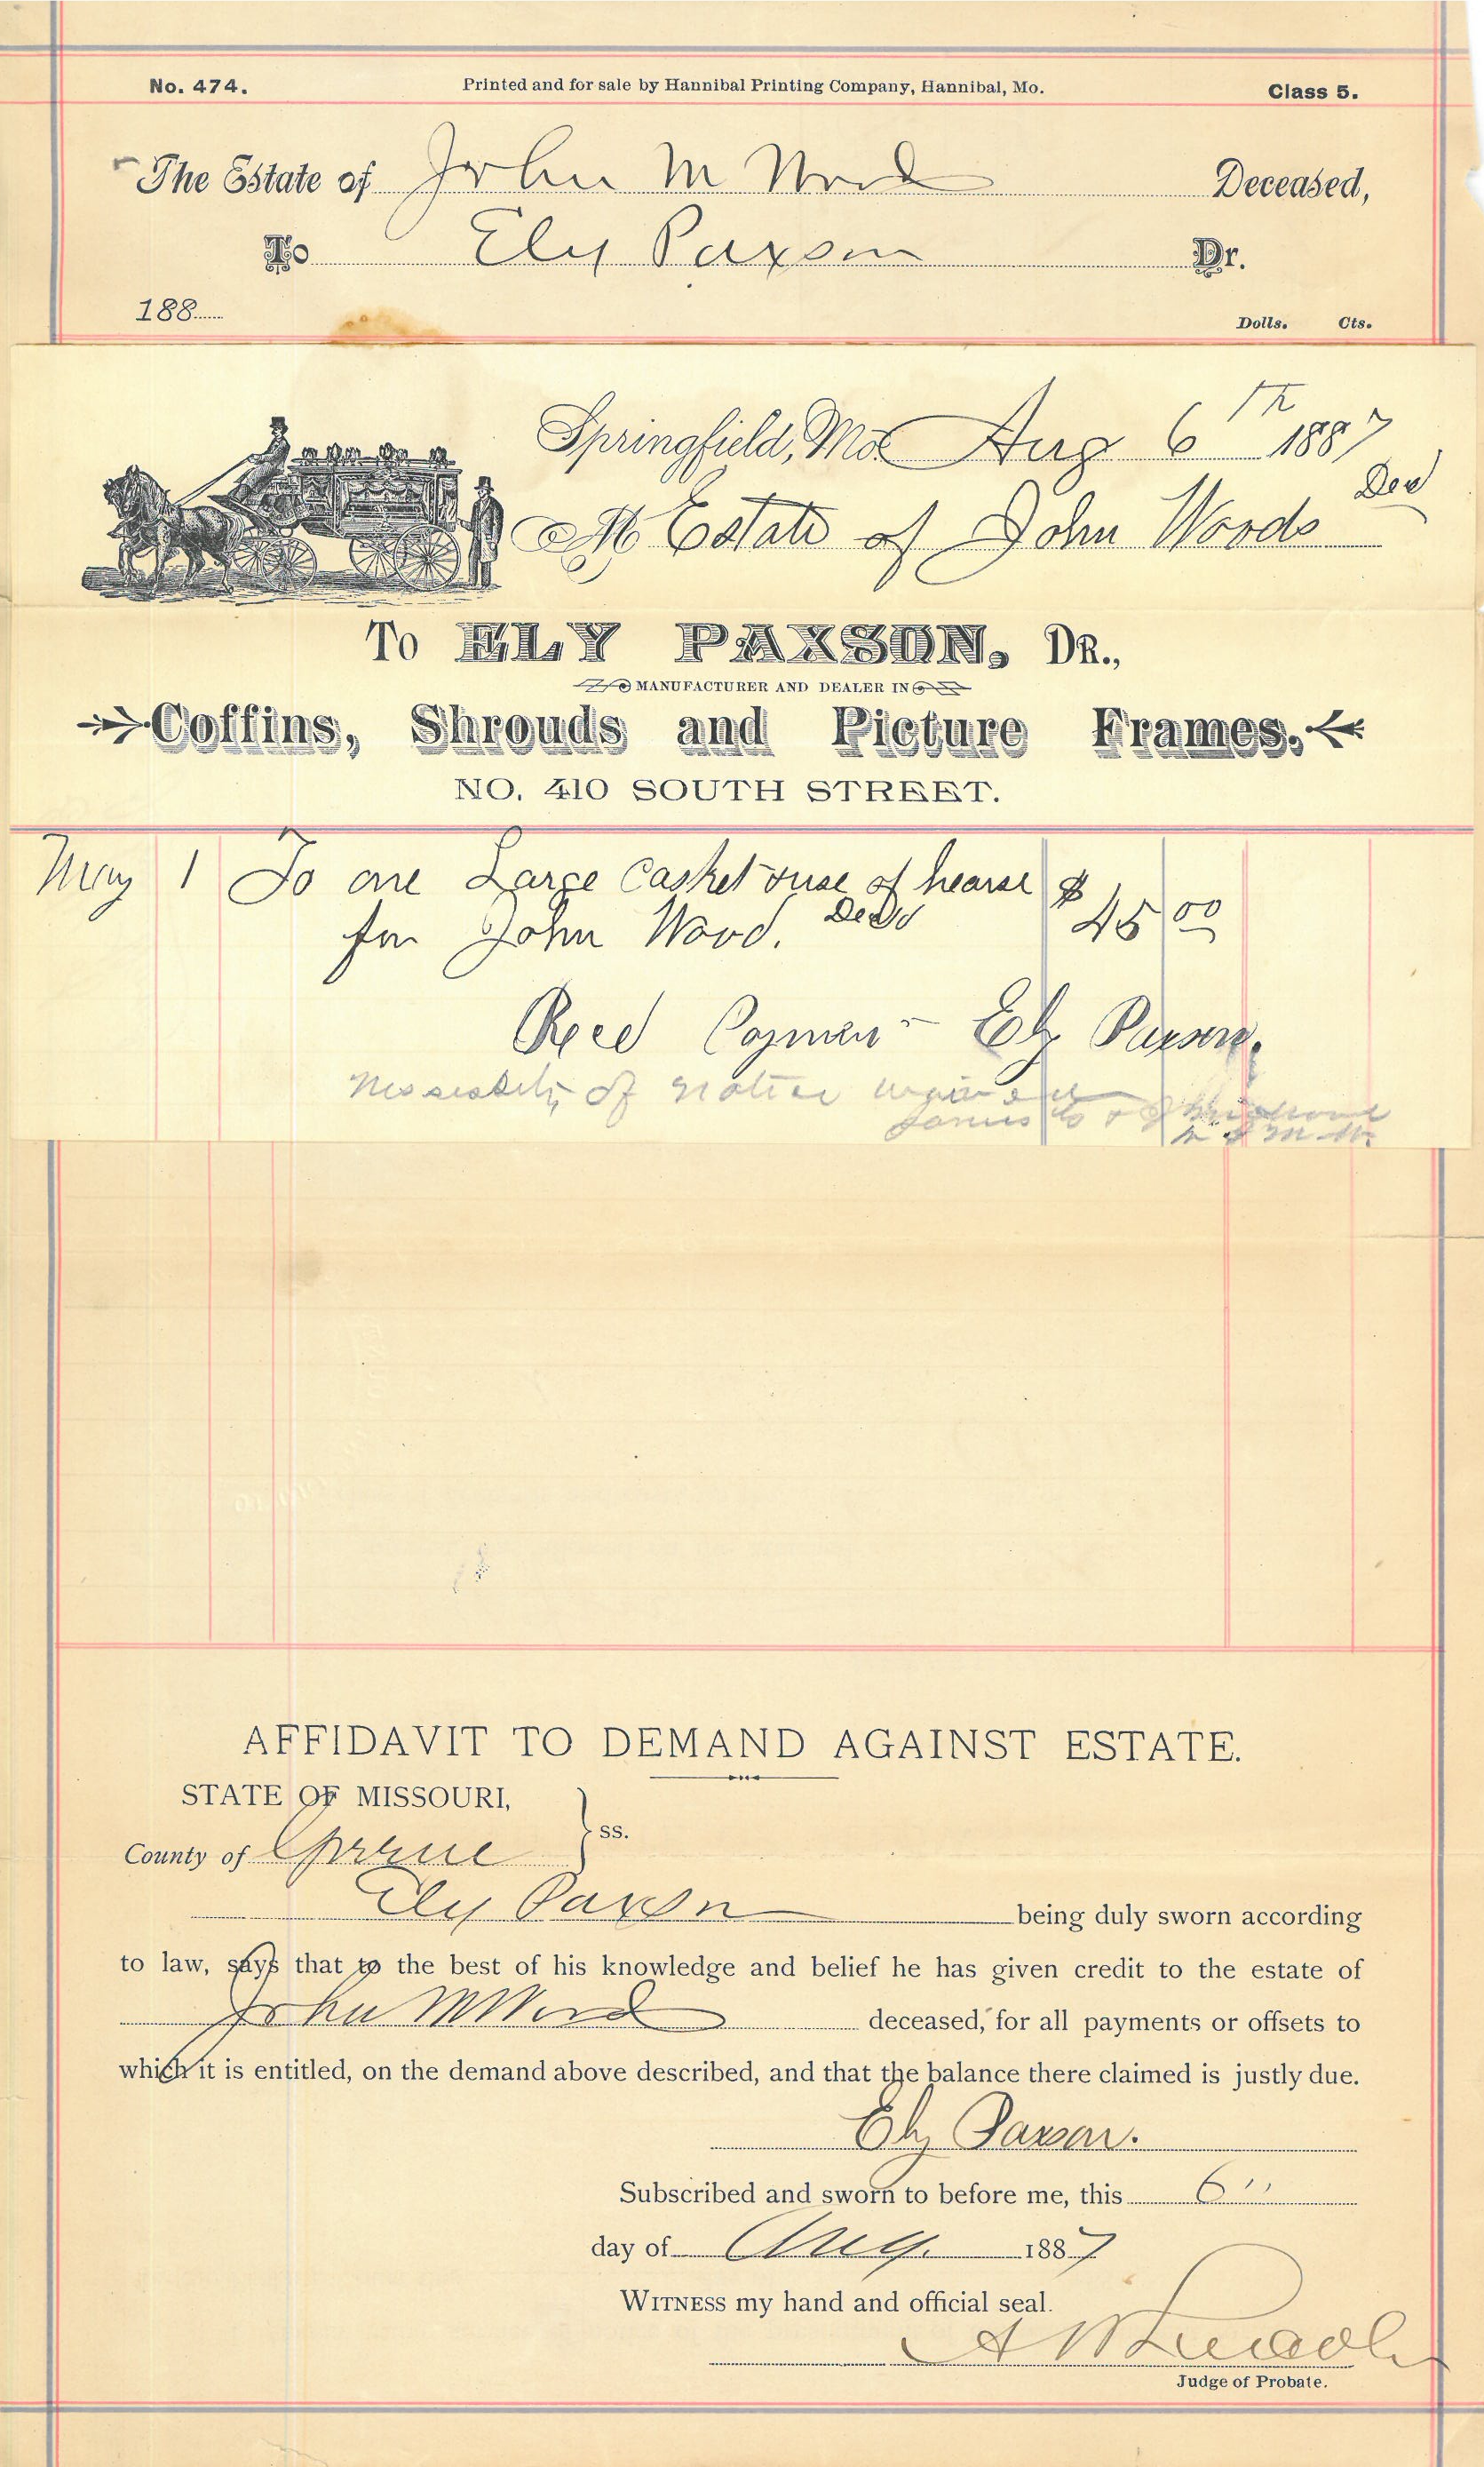 No. 474.
Printed and for sale by Hannibal Printing Company, Hannibal, Mo.
Class 5.
The Estate of John M Wood Deceased,
To Ely Paxson Dr.
188
Dolls. Cts.
Springfield, Mo Aug 6th 1887
M Estate of John Woods Decd
To ELY PAXSON, DR.,
MANUFACTURER AND DEALER IN
Coffins, Shrouds and Picture Frames.
NO. 410 SOUTH STREET.
May 1 To one Large Casket & use of hearse $
for John Wood. Decd 45 00
Recd Payment Ely Paxson.
of notice waived
AFFIDAVIT TO DEMAND AGAINST ESTATE.
STATE OF MISSOURI,
County of Greene ss.
Ely Paxson being duly sworn according
to law, says that to the best of his knowledge and belief he has given credit to the estate of
John M Wood deceased, for all payments or offsets to
which it is entitled, on the demand above described, and that the balance there claimed is justly due.
Ely Paxson.
Subscribed and sworn to before me, this 6"
day of Aug. 1887
WITNESS my hand and official seal.
Judge of Probate.